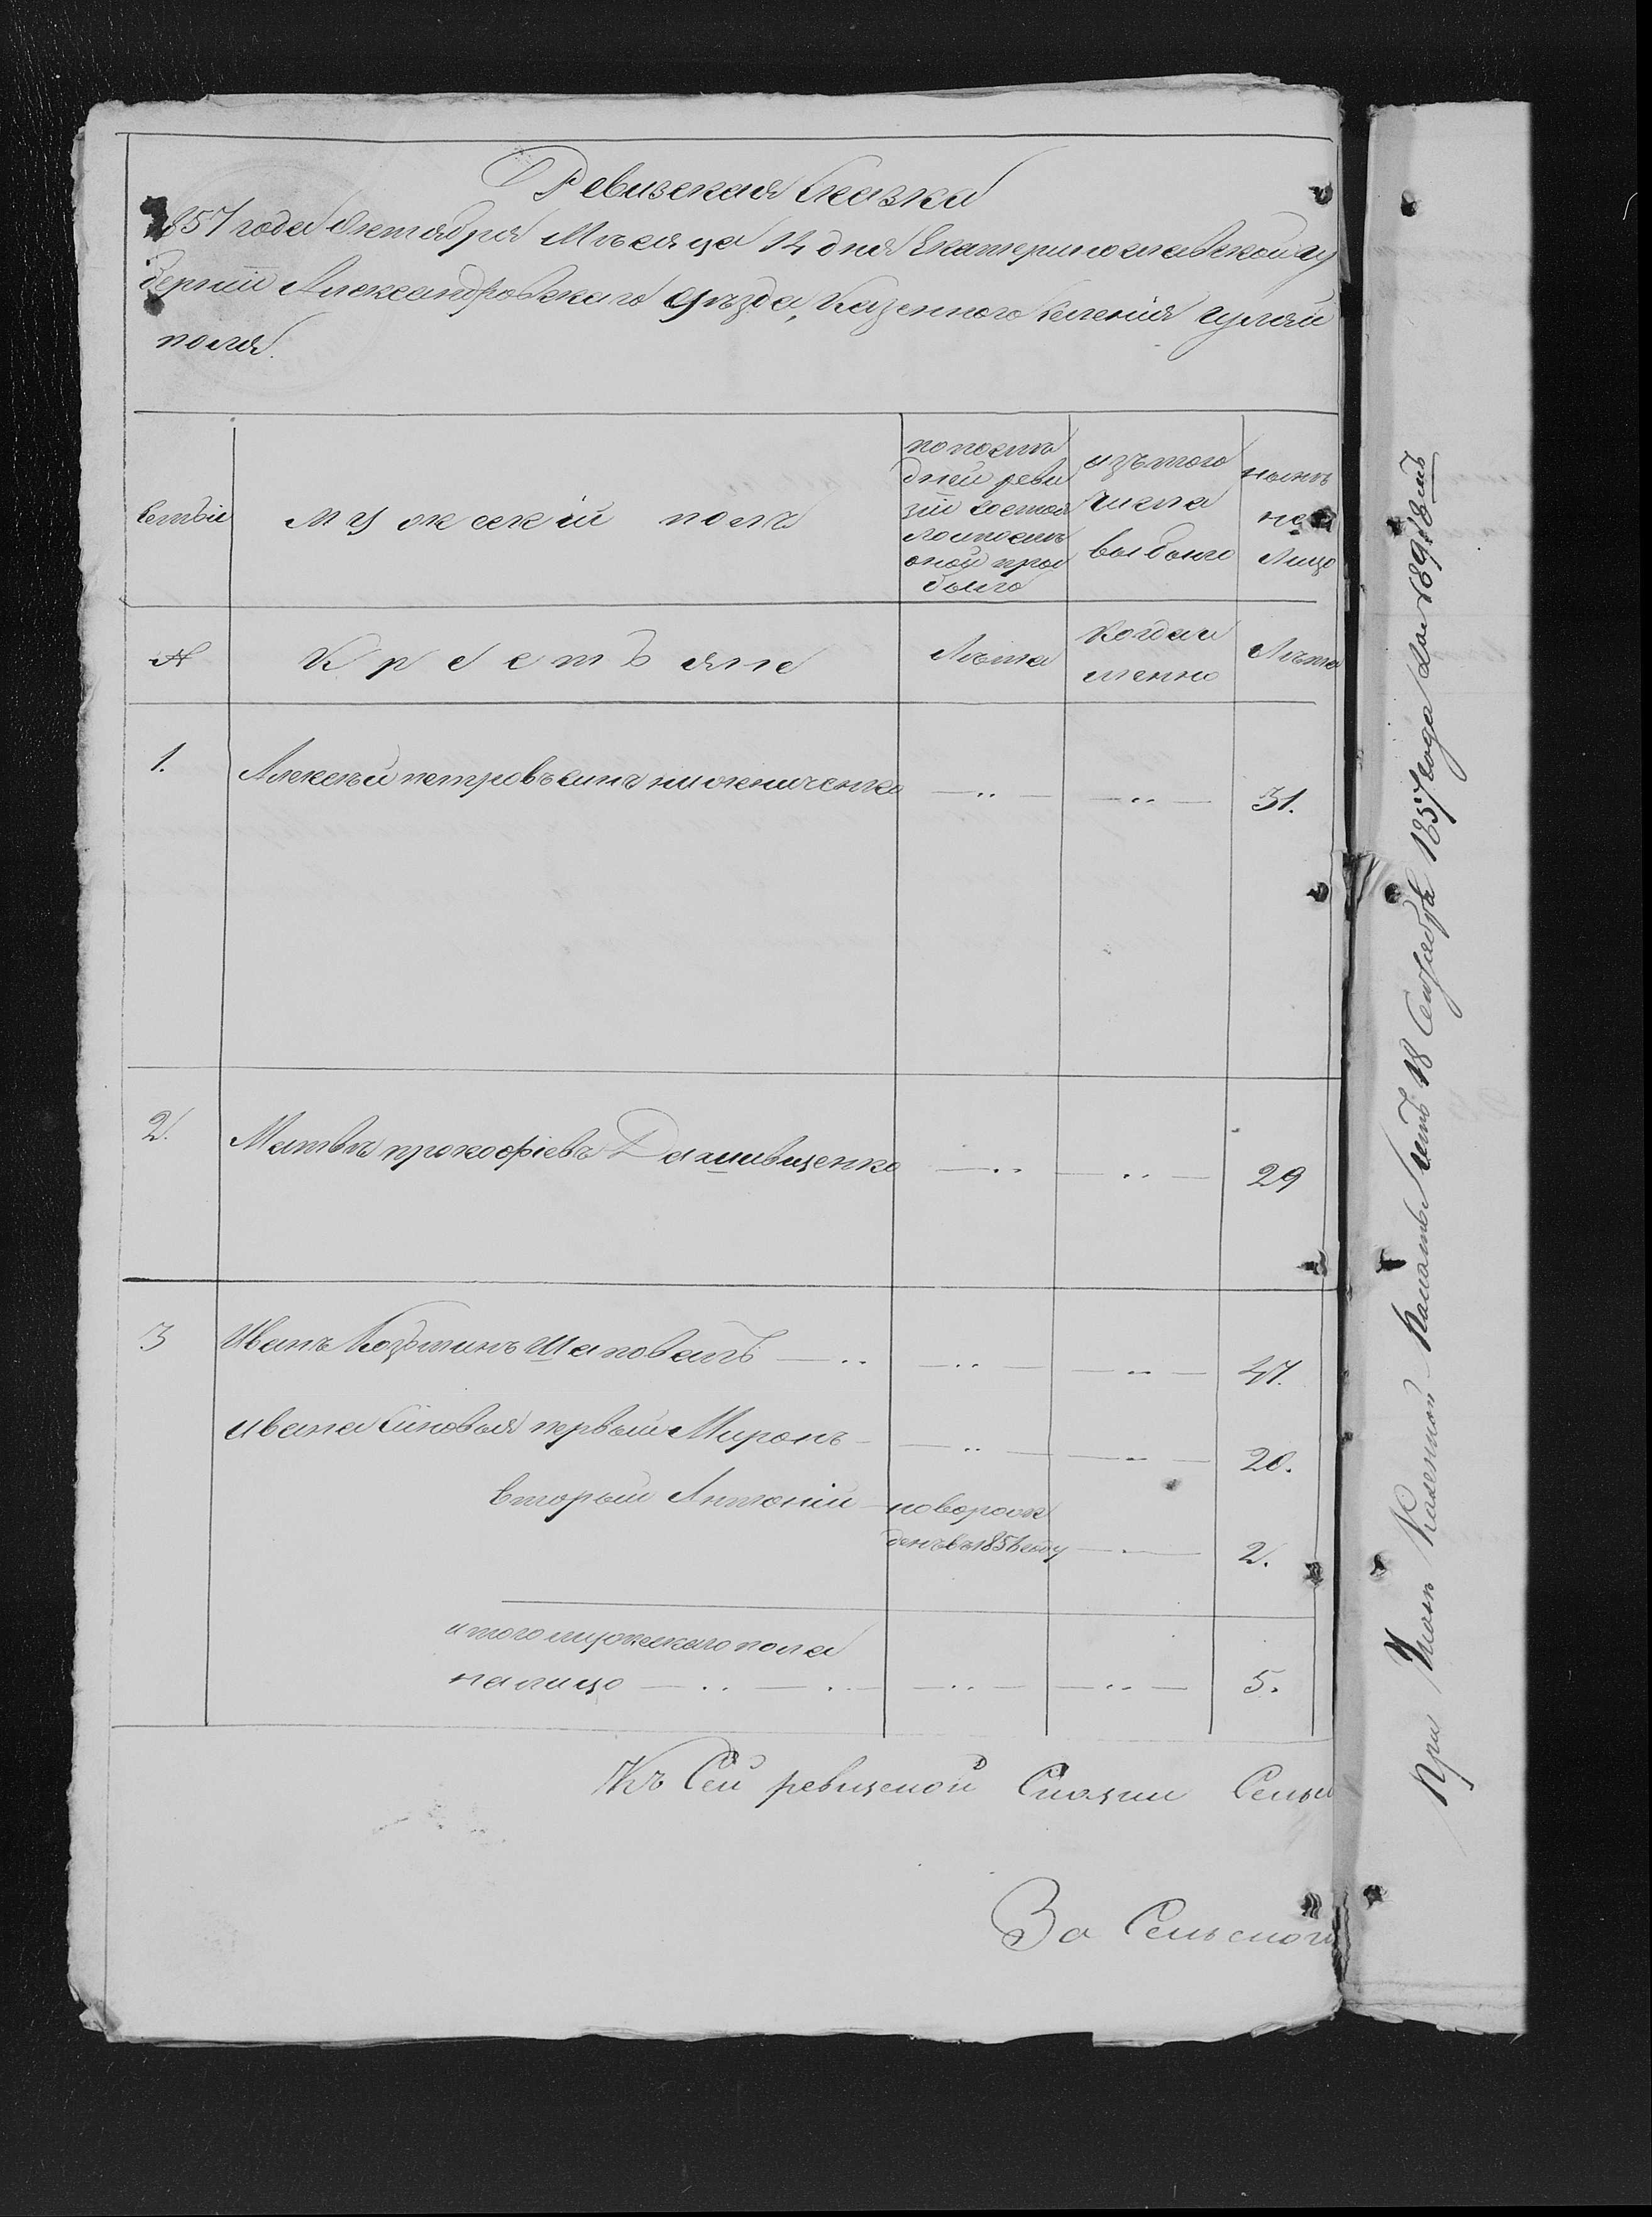 Ревизская Сказка
1857 года Октября Мѣсяца 14 дня Екатеринославской гу
берніи Александровскаго уѣзда, Казенного Селенія гуляй
поля.
Семьи
мужескій полъ
по послѣ
дней реви
зіи состоя
ло и послѣ
оной при
было
изъ того
числа
выбыло
нынѣ
на
Лицо
№
Крестьяне
Лѣта
когда и
менно
Лѣта
1.
Алексѣй петровъ сынъ нижниченко
31.
2.
Матвѣй прокофіевъ Дашивщенко
29
3
Иванъ Козминъ Шаповалъ
47.
ивана Сыновья первый Миронъ
20.
вторый Антоній
новорож
денъ въ 1856 году
2.
итого мужескаго пола
налицо
5.
Къ Сей ревизской Сказки Сельс
За Сельского
При Казенной Палатѣ 18 Сентября 1857 года За 189